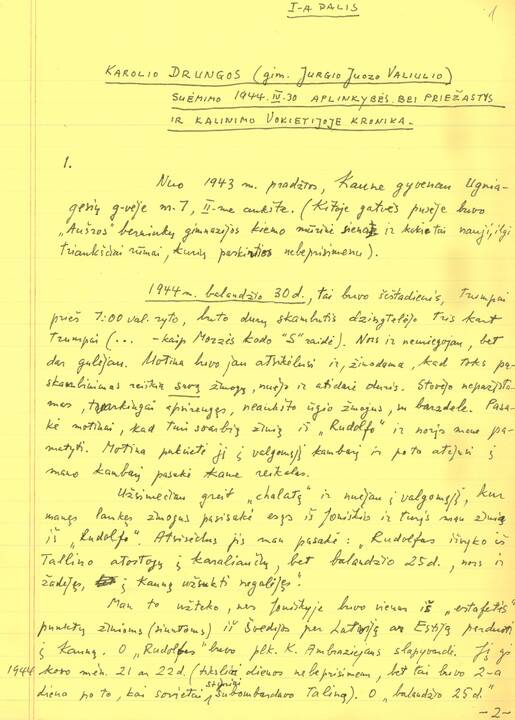 I-A DALIS
1
KAROLIO DRUNGOS (gim. JURGIO JUOZO VALIULIO)
SUĖMIMO 1944.IV.30 APLINKYBĖS BEI PRIEŽASTYS
IR KALINIMO VOKIETIJOJE KRONIKA.
1.
Nuo 1943 m. pradžios, Kaune gyvenau Ugnia-
gesių g-vėje nr. 7, II-me aukšte. (Kitoje gatvės pusėje buvo
„Aušros" berniukų gimnazijos kiemo mūrinė siena ir kokie tai nauji, ilgi
triaukščiai rūmai, kurių paskirties nebeprisimenu).
1944 m. balandžio 30 d., tai buvo šeštadienis, trumpai
prieš 7:00 val. ryto, buto durų skambutis dzingtelėjo tris kart
trumpai (... - kaip Morzės kodo "S" raidė). Nors ir nemiegojau, bet
dar gulėjau. Motina buvo jau atsikėlusi ir, žinodama, kad toks pa-
skambinimas reiškia savą žmogų, nuėjo ir atidarė duris. Stovėjo nepažįsta-
mas, tvarkingai apsirengęs, neaukšto ūgio žmogus, su barzdele. Pasa-
kė motinai, kad turi svarbią žinią iš „Rudolfo" ir norįs mane pa-
matyti. Motina pakvietė jį į valgomąjį kambarį ir po to atėjusi į
mano kambarį pasakė kame reikalas.
Užsimečiau greit „chalatą" ir nuėjau į valgomąjį, kur
manęs laukęs žmogus pasisakė esąs iš Joniškio ir turįs man žinią
iš „Rudolfo". Atsisėdus jis man pasakė: „Rudolfas išvyko iš
Tallino atostogų į Karaliaučių, bet balandžio 25 d., nors ir
žadėjęs, į Kauną užsukti negalėjęs".
Man to užteko, nes Joniškyje buvo vienas iš „estafetės"
punktų žinioms (siuntoms) iš Švedijos per Latviją ar Estiją perduoti
į Kauną. O „Rudolfas" buvo plk. K. Ambraziejaus slapyvardė. Jį gi
1944 kovo mėn. 21 ar 22 d. (tikslios dienos nebeprisimenu, bet tai buvo 2-a
diena po to, kai sovietai stipriai subombardavo Taliną). O „balandžio 25 d."
-2-